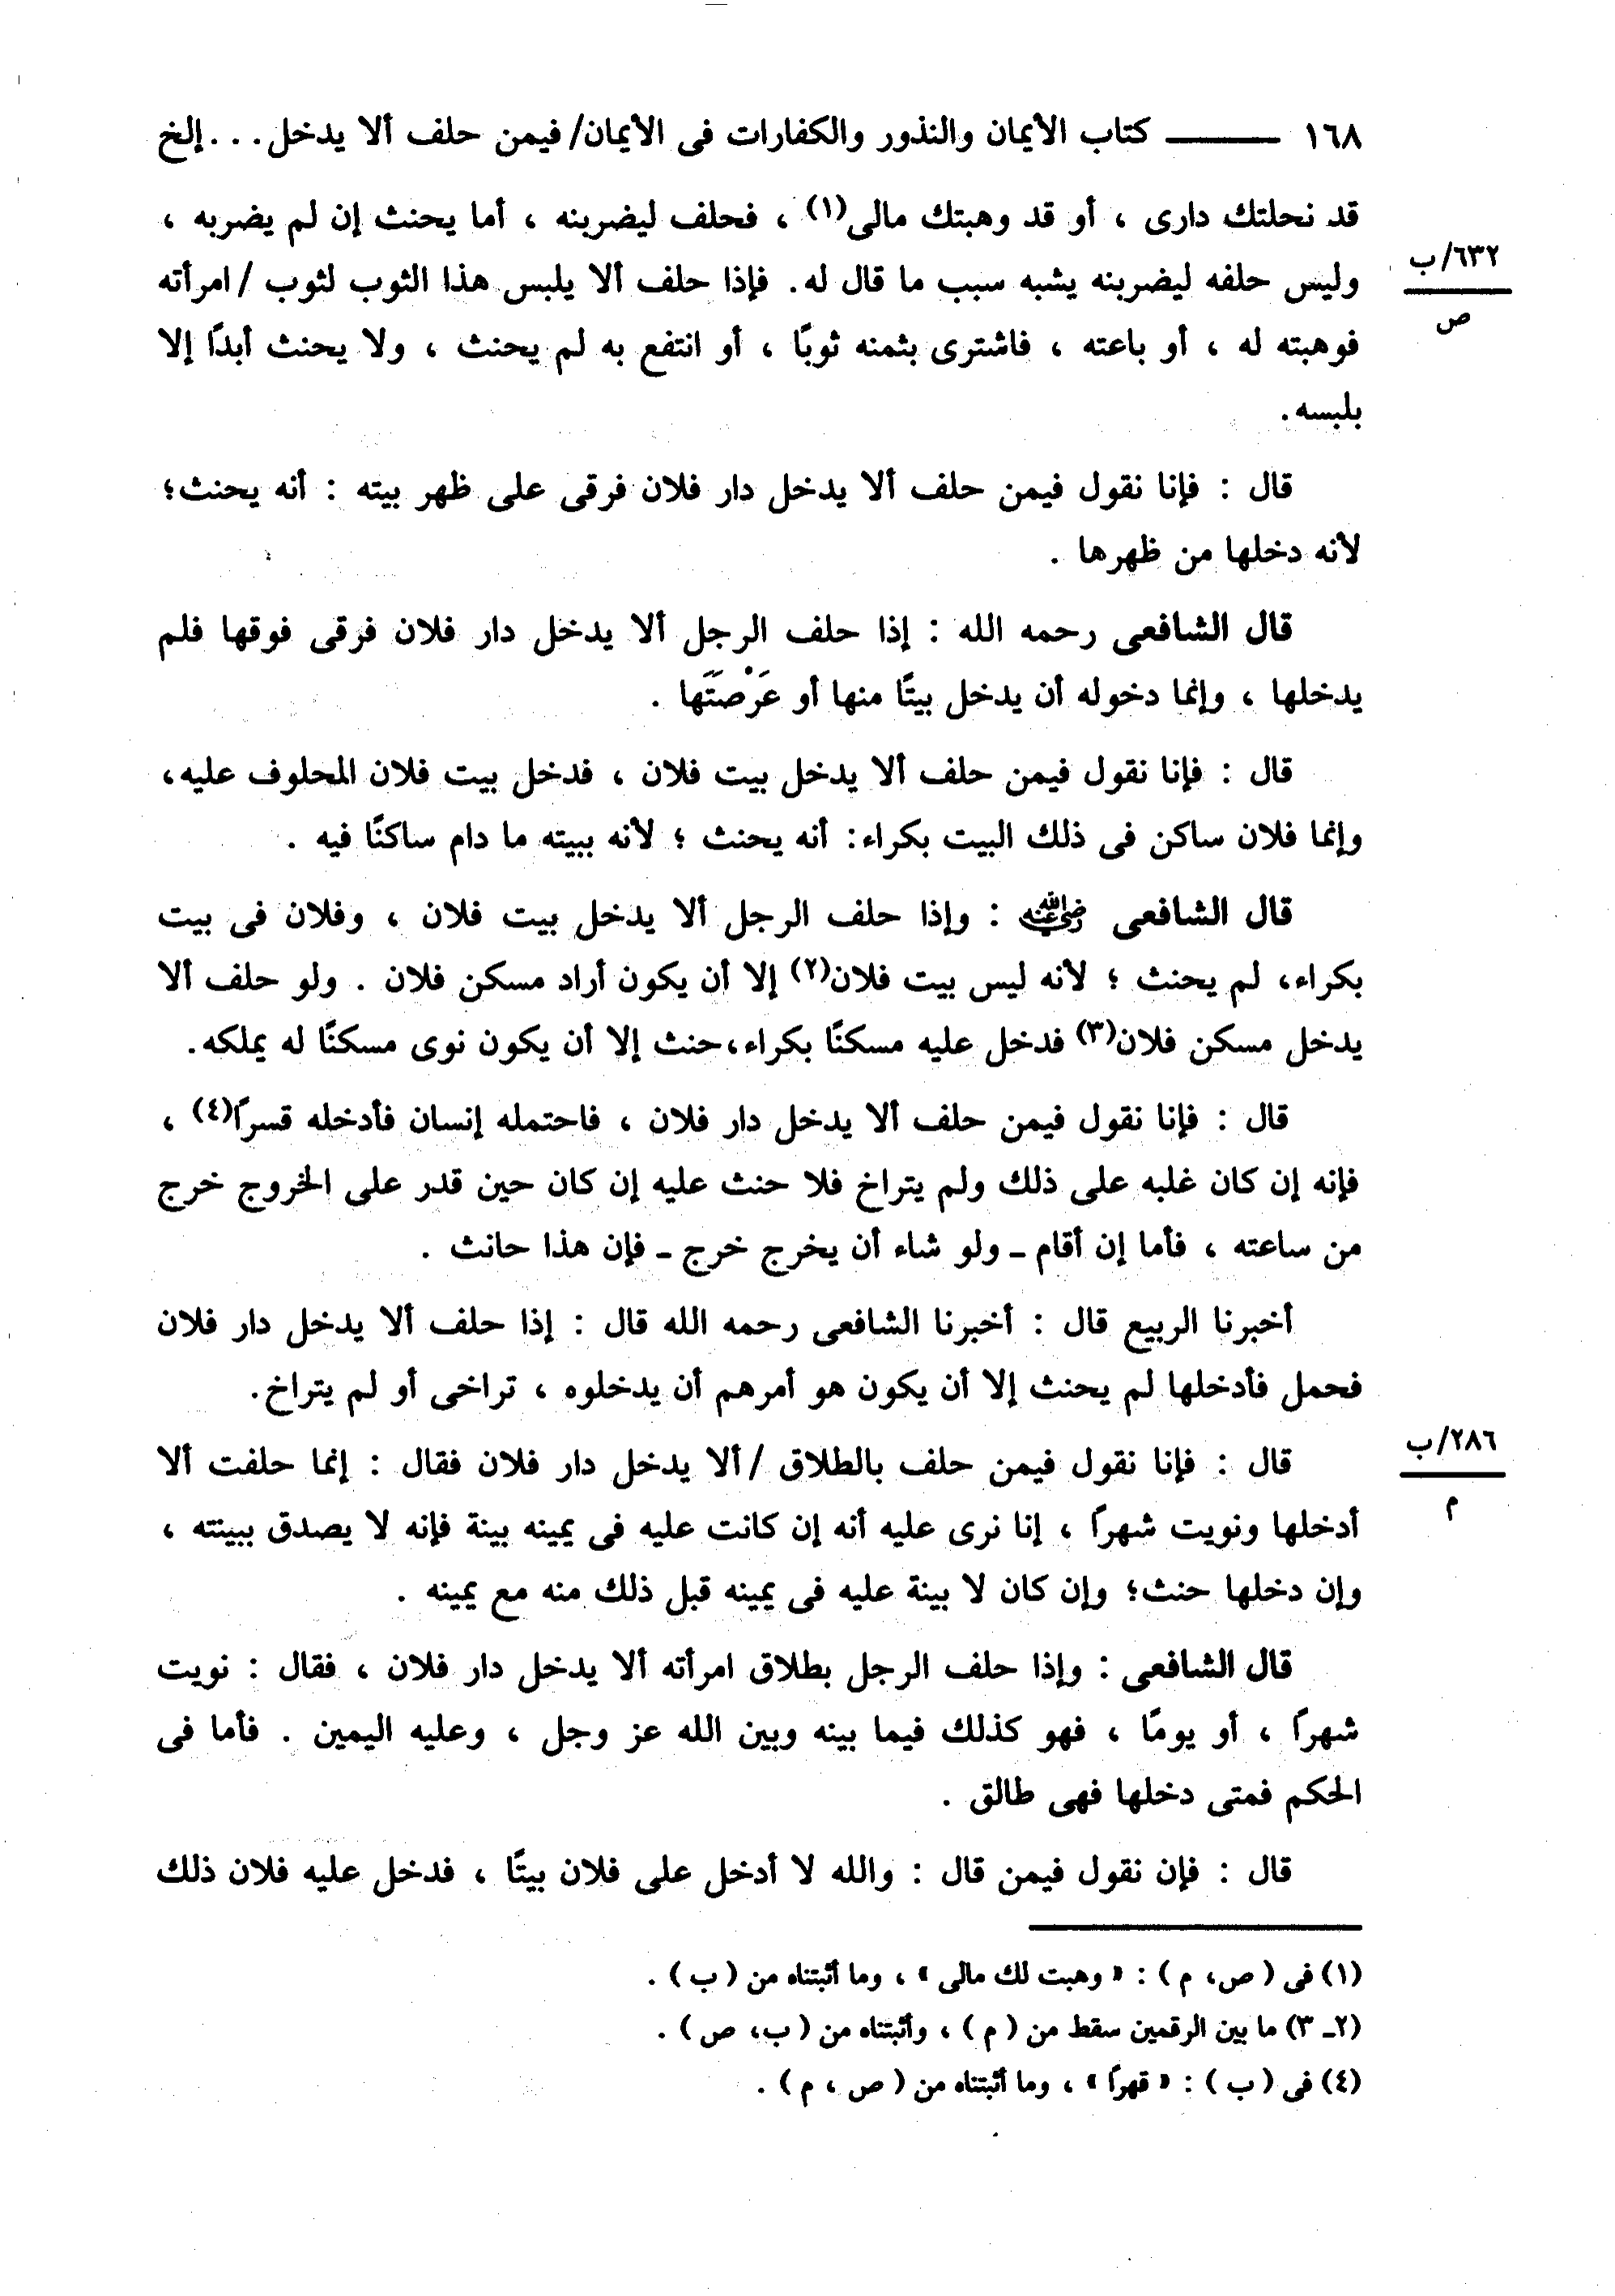 ١٦٨ ــــــــ كتاب الأيمان والنذور والكفارات فى الأيمان/ فيمن حلف ألا يدخل . . . إلخ
قد نحلتك دارى ، أو قد وهبتك مالى(١) ، فحلف ليضربنه ، أما يحنث إن لم يضربه ،
٦٣٢/ب
ص
وليس حلفه ليضربنه يشبه سبب ما قال له. فإذا حلف ألا يلبس هذا الثوب لثوب / امرأته
فوهبته له ، أو باعته ، فاشترى بثمنه ثوبًا ، أو انتفع به لم يحنث ، ولا يحنث أبدًا إلا
بلبسه.
قال : فإنا نقول فيمن حلف ألا يدخل دار فلان فرقى على ظهر بيته : أنه يحنث؛
لأنه دخلها من ظهرها .
قال الشافعى رحمه الله : إذا حلف الرجل ألا يدخل دار فلان فرقى فوقها فلم
يدخلها ، وإنما دخوله أن يدخل بيتًا منها أو عَرْصَتَها .
قال : فإنا نقول فيمن حلف ألا يدخل بيت فلان ، فدخل بيت فلان المحلوف عليه،
وإنما فلان ساكن فى ذلك البيت بكراء: أنه يحنث ؛ لأنه ببيته ما دام ساكنًا فيه .
قال الشافعى رضي الله عنه : وإذا حلف الرجل ألا يدخل بيت فلان ، وفلان فى بيت
بكراء، لم يحنث ؛ لأنه ليس بيت فلان(٢) إلا أن يكون أراد مسكن فلان . ولو حلف ألا
يدخل مسكن فلان(٣) فدخل عليه مسكنًا بكراء،حنث إلا أن يكون نوى مسكنًا له يملكه.
قال : فإنا نقول فيمن حلف ألا يدخل دار فلان ، فاحتمله إنسان فأدخله قسرًا(٤) ،
فإنه إن كان غلبه على ذلك ولم يتراخ فلا حنث عليه إن كان حين قدر على الخروج خرج
من ساعته ، فأما إن أقام ـ ولو شاء أن يخرج خرج ـ فإن هذا حانث .
أخبرنا الربيع قال : أخبرنا الشافعى رحمه الله قال : إذا حلف ألا يدخل دار فلان
فحمل فأدخلها لم يحنث إلا أن يكون هو أمرهم أن يدخلوه ، تراخى أو لم يتراخ.
٢٨٦/ب
م
قال : فإنا نقول فيمن حلف بالطلاق / ألا يدخل دار فلان فقال : إنما حلفت ألا
أدخلها ونويت شهرًا ، إنا نرى عليه أنه إن كانت عليه فى يمينه بينة فإنه لا يصدق ببينته ،
وإن دخلها حنث؛ وإن كان لا بينة عليه فى يمينه قبل ذلك منه مع يمينه .
قال الشافعى : وإذا حلف الرجل بطلاق امرأته ألا يدخل دار فلان ، فقال : نويت
شهرًا ، أو يومًا ، فهو كذلك فيما بينه وبين الله عز وجل ، وعليه اليمين . فأما فى
الحكم فمتى دخلها فهى طالق .
قال : فإن نقول فيمن قال : والله لا أدخل على فلان بيتًا ، فدخل عليه فلان ذلك
(١) فى ( ص، م ) : « وهبت لك مالى » ، وما أثبتناه من ( ب ) .
(٢ـ ٣) ما بين الرقمين سقط من ( م ) ، وأثبتناه من ( ب، ص ) .
(٤) فى ( ب ) : « قهرًا » ، وما أثبتناه من ( ص ، م ) .